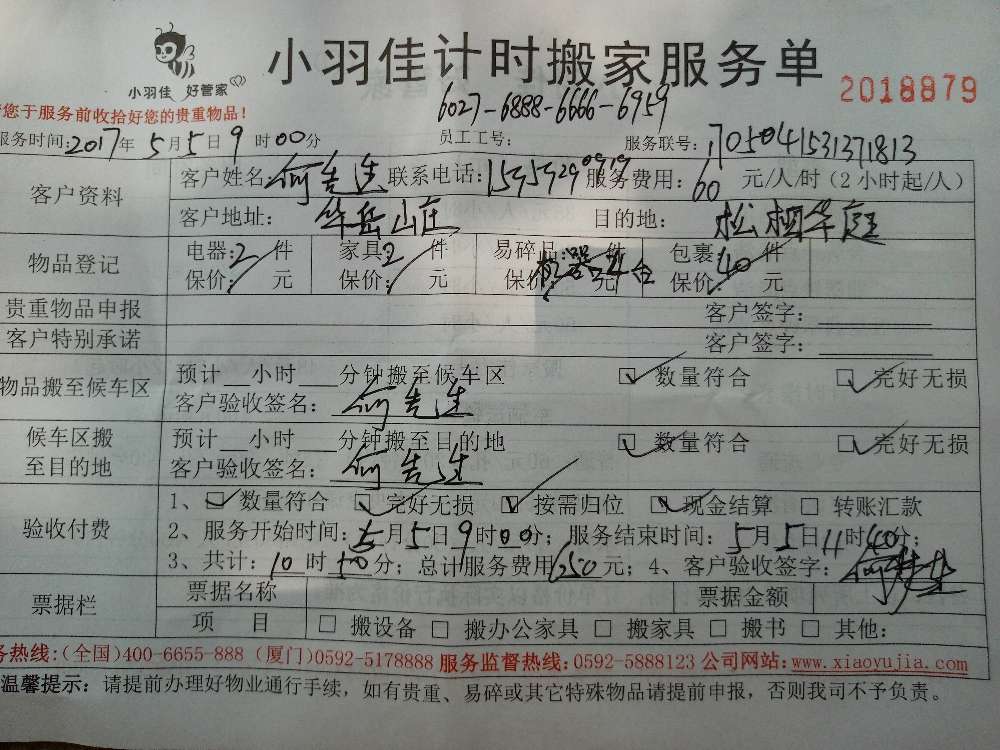 小羽佳 好管家
小羽佳计时搬家服务单
2018879
您于服务前收拾好您的贵重物品！
6027-6888-6666-6959
服务时间：2017年5月5日9时00分 员工工号： 服务联号：1705041531371813
客户资料
客户姓名：何先生 联系电话： 服务费用：60元/人/时（2小时起/人）
客户地址：华岳山庄 目的地：松柏华庭
物品登记
电器：2件 家具2件 易碎品：件 包裹：40件
保价：元 保价：元 保价：元 保价：元
贵重物品申报 客户签字：
客户特别承诺 客户签字：
物品搬至候车区
预计__小时___分钟搬至候车区 ☑ 数量符合 ☑ 完好无损
客户验收签名：何先生
候车区搬至目的地
预计__小时___分钟搬至目的地 ☑ 数量符合 ☑ 完好无损
客户验收签名：何先生
验收付费
1、☑ 数量符合 ☑ 完好无损 ☑ 按需归位 ☑ 现金结算 □ 转账汇款
2、服务开始时间：5月5日9时00分；服务结束时间：5月5日11时40分；
3、共计：10时50分；总计服务费用650元；4、客户验收签字：何先生
票据栏
票据名称 票据金额
项 目 □ 搬设备 □ 搬办公家具 □ 搬家具 □ 搬书 □ 其他：
务热线：(全国)400-6655-888 (厦门)0592-5178888 服务监督热线：0592-5888123 公司网站：www.xiaoyujia.com
温馨提示：请提前办理好物业通行手续，如有贵重、易碎或其它特殊物品请提前申报，否则我司不予负责。